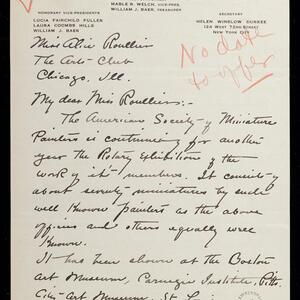 HONORARY VICE-PRESIDENTS
LUCIA FAIRCHILD FULLER
LAURA COOMBS HILLS
WILLIAM J. BAER
MABLE R. WELCH, VICE-PRES.
WILLIAM J. BAER, TREASURER
SECRETARY
HELEN WINSLOW DURKEE
124 WEST 72ND STREET
NEW YORK CITY
No date
to offer
Miss Alice Roullier
The Arts Club
Chicago, Ill.
My dear Miss Roullier:-
The American Society of Miniature
Painters is continuing for another
year the Rotary Exhibition of the
work of its members. It consists of
about seventy miniatures by such
well known painters as the above
officers and others equally well
known.
It has been shown at the Boston
Art Museum, Carnegie Institute, Pitts.
City Art Museum, St. Louis